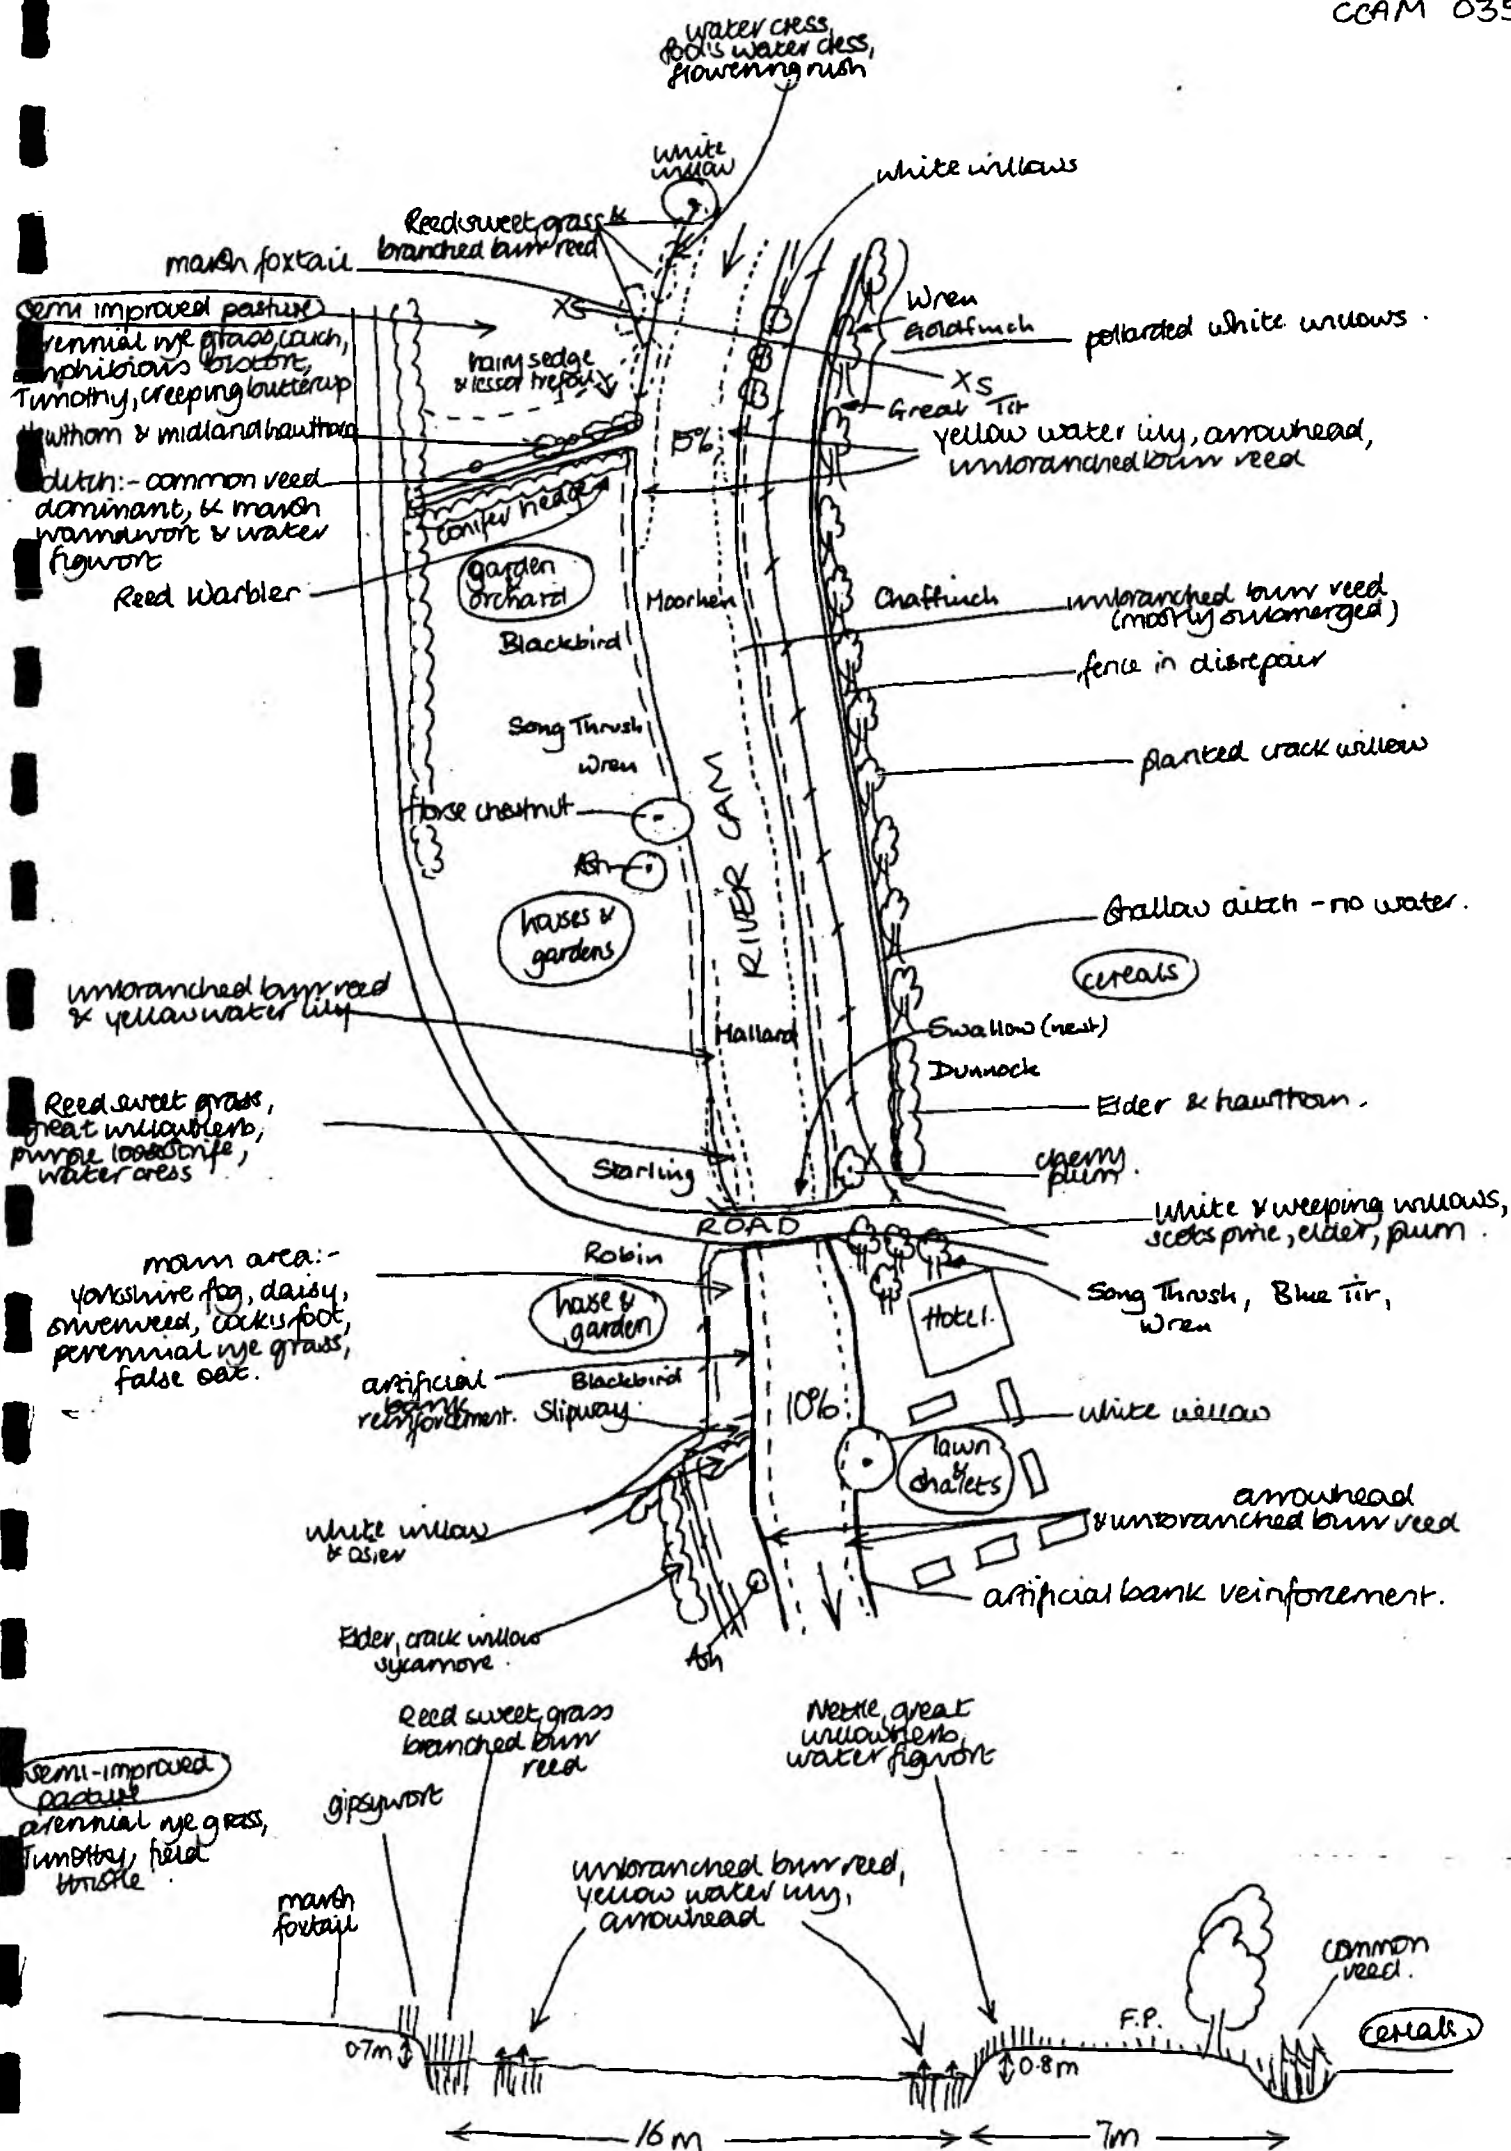 CCAM 035
water cress,
fool's water cress,
flowering rush
white
willow
white willows
Reed sweet grass &
branched burr reed
marsh foxtail
semi improved pasture
rennial rye grass, couch,
amphibious bistort,
Timothy, creeping buttercup
hawthorn & midland hawthorn
ditch:- common reed
dominant, & marsh
woundwort & water
figwort
Reed Warbler
XS
hairy sedge
& lesser trefoil
Wren
Goldfinch
pollarded white willows.
XS
Great Tit
5%
yellow water lily, arrowhead,
unbranched burr reed
conifer hedge
garden
&
orchard
Moorhen
Blackbird
Chaffinch
unbranched burr reed
(mostly submerged)
fence in disrepair
Song Thrush
Wren
planted crack willow
Horse chestnut
Ash
RIVER CAM
houses &
gardens
shallow ditch - no water.
cereals
unbranched burr reed
& yellow water lily
Mallard
Swallow (nest)
Dunnock
Elder & hawthorn.
Reed sweet grass,
great willowherb,
purple loosestrife,
water cress
Starling
cherry
plum.
ROAD
white & weeping willows,
scots pine, elder, plum.
mown area:-
yorkshire fog, daisy,
silverweed, cocksfoot,
perennial rye grass,
false oat.
Robin
house &
garden
Hotel.
Song Thrush, Blue Tit,
Wren
artificial
bank
reinforcement.
Blackbird
Slipway.
10%
white willow
lawn
&
chalets
arrowhead
& unbranched burr reed
white willow
& osier
artificial bank reinforcement.
Elder, crack willow
sycamore.
Ash
Reed sweet grass
branched burr
reed
Nettle, great
willowherb,
water figwort
semi-improved
pasture
perennial rye grass,
Timothy, field
thistle.
gipsywort
marsh
foxtail
unbranched burr reed,
yellow water lily,
arrowhead
common
reed.
F.P.
cereals
0.7m
0.8m
16m
7m